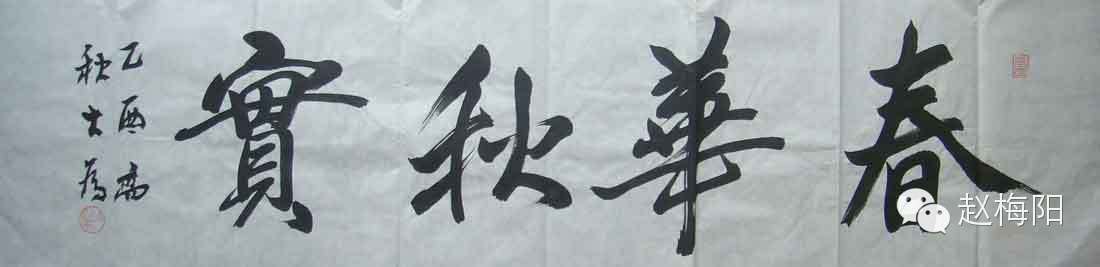 春華秋實
乙酉高
秋
赵梅阳